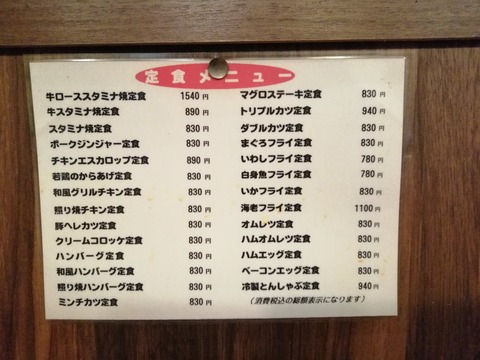 定食メニュー
牛ローススタミナ焼定食 1540円
牛スタミナ焼定食 890円
スタミナ焼定食 830円
ポークジンジャー定食 830円
チキンエスカロップ定食 890円
若鶏のからあげ定食 830円
和風グリルチキン定食 830円
照り焼チキン定食 830円
豚ヘレカツ定食 830円
クリームコロッケ定食 830円
ハンバーグ定食 830円
和風ハンバーグ定食 830円
照り焼ハンバーグ定食 830円
ミンチカツ定食 830円
マグロステーキ定食 830円
トリプルカツ定食 940円
ダブルカツ定食 830円
まぐろフライ定食 830円
いわしフライ定食 780円
白身魚フライ定食 780円
いかフライ定食 830円
海老フライ定食 1100円
オムレツ定食 830円
ハムオムレツ定食 830円
ハムエッグ定食 830円
ベーコンエッグ定食 830円
冷製とんしゃぶ定食 940円
（消費税込の総額表示になります）